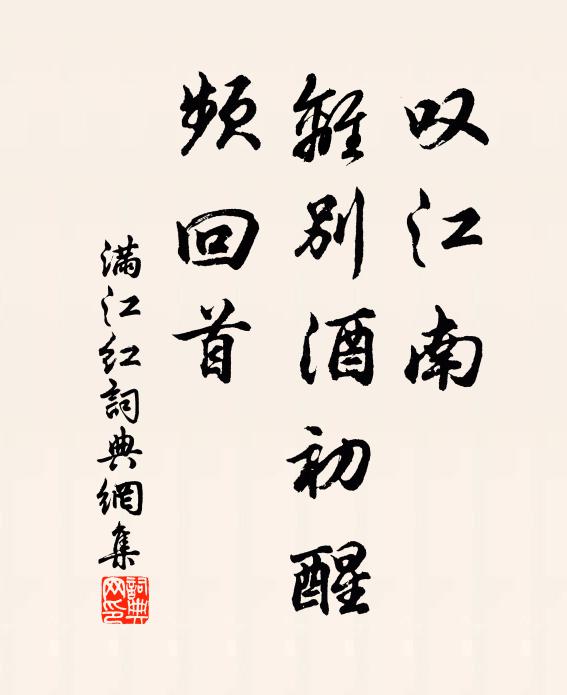 叹江南
離别酒初醒
频回首
满江红詞典網集
詞典网印